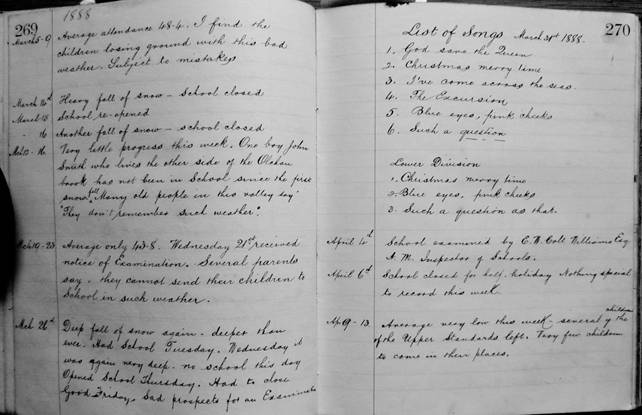 269
1888
March 5-9 Average attendance 48.4. I find the
children losing ground with this bad
weather. Subject to mistakes
March 14th Heavy fall of snow - School closed
March 15 School re-opened
" 16 Another fall of snow - school closed
Mch 12 - 16 Very little progress this week. One boy John
Smith who lives the other side of the
brook has not been in School since the first
snow fall. Many old people in this valley say
"They don't remember such weather".
Mch 19 - 23 Average only 43.8. Wednesday 21st received
notice of Examination. Several parents
say. they cannot send their children to
School in such weather.
Mch 26th Deep fall of snow again. deeper than
ever. Had School Tuesday. Wednesday it
was again very deep. no school this day
Opened School Thursday. Had to close
Good Friday. Sad prospects for an
270
List of Songs March 31st 1888.
1. God save the Queen
2. Christmas merry time
3. I've come across the seas.
4. The Excursion
5. Blue eyes, pink cheeks
6. Such a question
Lower Division
1. Christmas merry time
2. Blue eyes, pink cheeks
3. Such a question as that.
April 4th School examined by C. W. Colt Williams Esq
H. M. Inspector of Schools.
April 6th School closed for half-holiday Nothing special
to record this week
children
Ap 9 - 13 Average very low this week - several of the
of the Upper Standards left. Very few children
to come in their places.